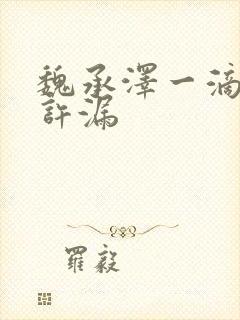 魏承澤一滴
許漏
羅毅